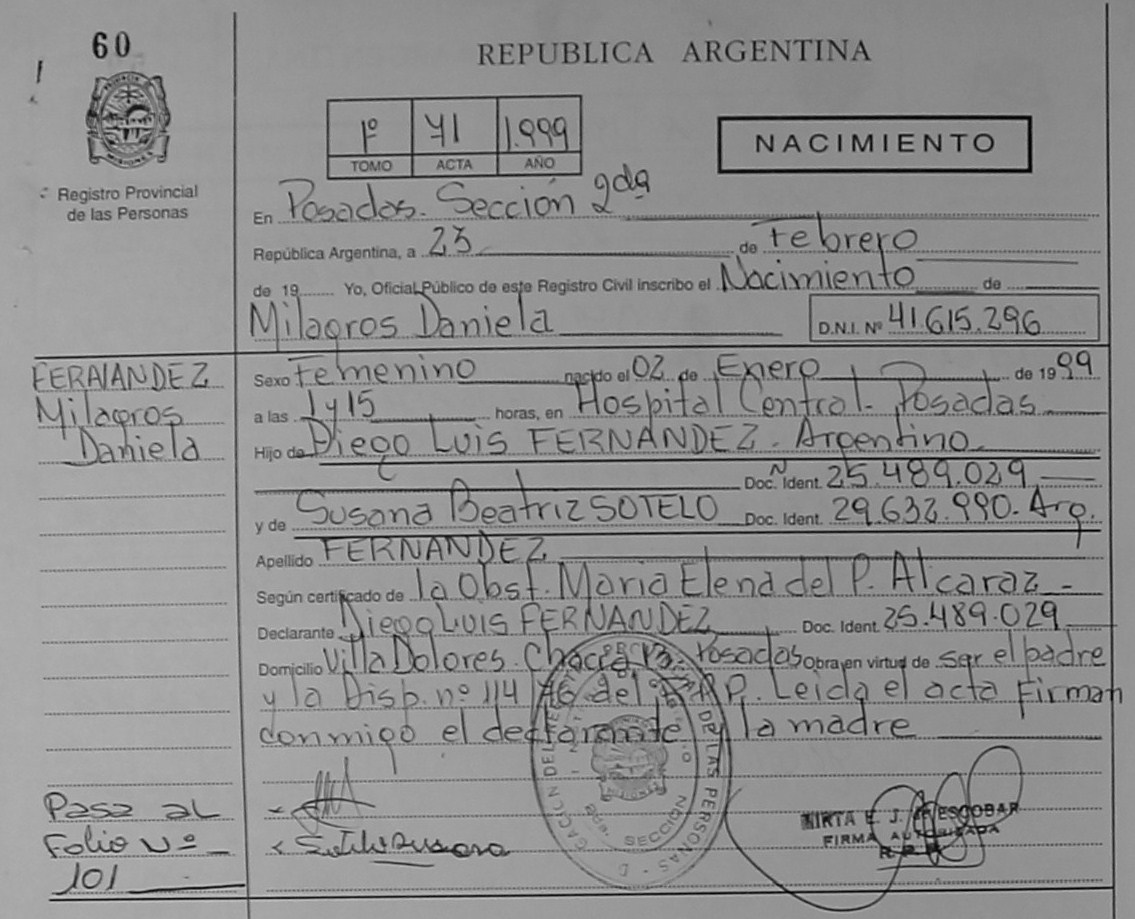 60
REPUBLICA ARGENTINA
1º 41 1.999
TOMO ACTA AÑO
NACIMIENTO
Registro Provincial
de las Personas
En Posadas. Sección 2da
República Argentina, a 23 de Febrero
de 19 Yo, Oficial Público de este Registro Civil inscribo el Nacimiento de
Milagros Daniela D.N.I. Nº 41.615.296
FERNANDEZ
Milagros
Daniela
Sexo Femenino nacido el 02 de Enero de 1999
a las 1y15 horas, en Hospital Central - Posadas
Hijo de Diego Luis FERNANDEZ - Argentino
Doc. Ident. 25.489.029
y de Susana Beatriz SOTELO Doc. Ident. 29.632.990. Arg.
Apellido FERNANDEZ
Según certificado de la Obst. Maria Elena del P. Alcaraz -
Declarante Diego Luis FERNANDEZ Doc. Ident. 25.489.029
Domicilio Villa Dolores. Chacra Posadas Obra en virtud de ser el padre
y la Disp. nº 114 del P. Leida el acta Firman
conmigo el declarante y la madre
Pasa al
Folio Nº
101
DE LAS PERSONAS
SECCION
MIRTA E. J. ESCOBAR
FIRMA AUTORIZADA